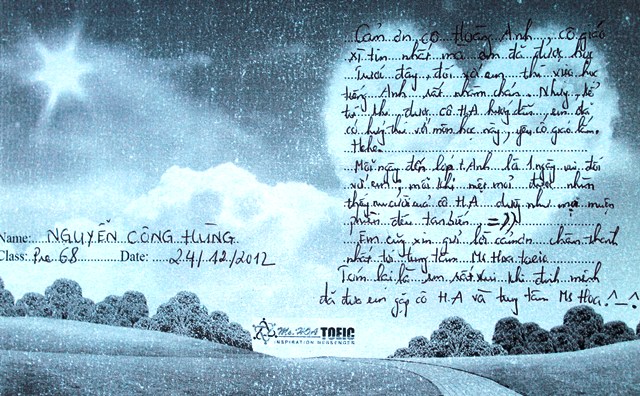 Cảm ơn cô Hoàng Anh, cô giáo
xì tin nhất mà em đã được học
Trước đây, đối với em thì việc học
tiếng Anh rất nhàm chán. Nhưng, kể
từ khi được cô H.A hướng dẫn, em đã
có hứng thú với môn học này, yêu cô giáo lắm.
Hehe.
Mỗi ngày đến lớp T.Anh là 1 ngày vui đối
với em, mỗi khi mệt mỏi được nhìn
thấy nụ cười của cô H.A dường như mọi muộn
phiền đều tan biến, =))
Em cũng xin gửi lời cảm ơn chân thành
nhất tới trung tâm Ms Hoa toeic
Tóm lại là em rất vui khi định mệnh
đã đưa em gặp cô H.A và trung tâm Ms Hoa. ^_^
Name: NGUYỄN CÔNG HÙNG
Class: Pre 68 Date: 24/12/2012
Ms. HOA TOEIC
INSPIRATION MESSENGERS